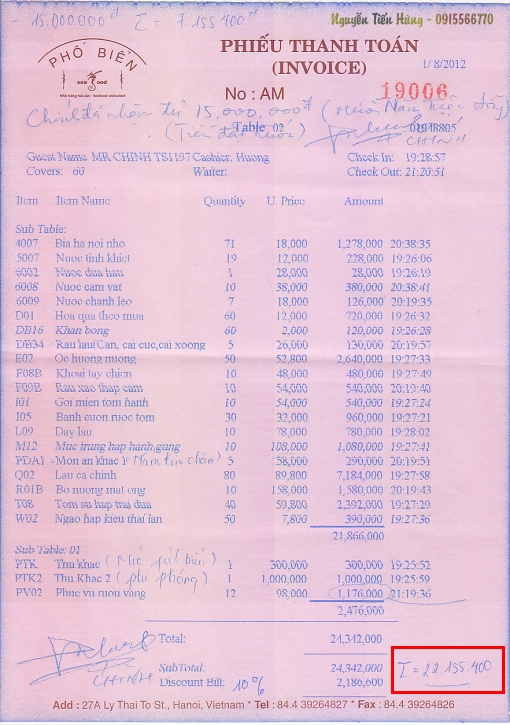 - 15.000.000đ Σ = 7.155.400đ
Nguyễn Tiến Hùng - 0915566770
PHỐ BIỂN
sea food
Nhà hàng Hải sản - Seafood restaurant
PHIẾU THANH TOÁN
(INVOICE)
1/ 8/2012
No : AM
19006
Chính đã nhận đủ 15.000.000đ (Mười Năm triệu đồng)
(Tiền đặt trước)
Table 02
01948805
CHINH
Guest Name MR CHINH TS1197 Cashier. Huong
Check In: 19:28:57
Covers: 60 Waiter:
Check Out: 21:20:51
Item Item Name Quantity U. Price Amount
Sub Table:
4007 Bia ha noi nho 71 18,000 1,278,000 20:38:35
5007 Nuoc tinh khiet 19 12,000 228,000 19:26:06
6002 Nuoc dua hau 1 28,000 28,000 19:26:19
6008 Nuoc cam vat 10 38,000 380,000 20:38:41
6009 Nuoc chanh leo 7 18,000 126,000 20:19:35
D01 Hoa qua theo mua 60 12,000 720,000 19:26:32
DB16 Khan bong 60 2,000 120,000 19:26:28
DB34 Rau lau(Can, cai cuc,cai xoong 5 26,000 130,000 20:19:57
E02 Oc huong nuong 50 52,800 2,640,000 19:27:33
F08B Khoai tay chien 10 48,000 480,000 19:27:49
F09B Rau xao thap cam 10 54,000 540,000 20:19:40
I01 Goi mien tom hanh 10 54,000 540,000 19:27:24
I05 Banh cuon ruoc tom 30 32,000 960,000 19:27:21
L09 Day lau 10 78,000 780,000 19:28:02
M12 Muc trung hap hanh,gung 10 108,000 1,080,000 19:27:41
PDA1 Mon an khac 1 5 58,000 290,000 20:19:51
Q02 Lau ca chinh 80 89,800 7,184,000 19:27:58
R01B Bo nuong mat ong 10 158,000 1,580,000 20:19:43
T08 Tom su hap trai dua 40 59,800 2,392,000 19:27:29
W02 Ngao hap kieu thai lan 50 7,800 390,000 19:27:36
21,866,000
Sub Table: 01
PTK Thu khac 1 300,000 300,000 19:25:52
PTK2 Thu Khac 2 (phụ phòng) 1 1,000,000 1,000,000 19:25:59
PV02 Phuc vu ruou vang 12 98,000 1,176,000 21:19:36
2,476,000
Total: 24,342,000
SubTotal: 24,342,000
Σ = 22.155.400
Discount Bill: 10% 2,186,600
Add : 27A Ly Thai To St., Hanoi, Vietnam * Tel : 84.4 39264827 * Fax : 84.4 39264826